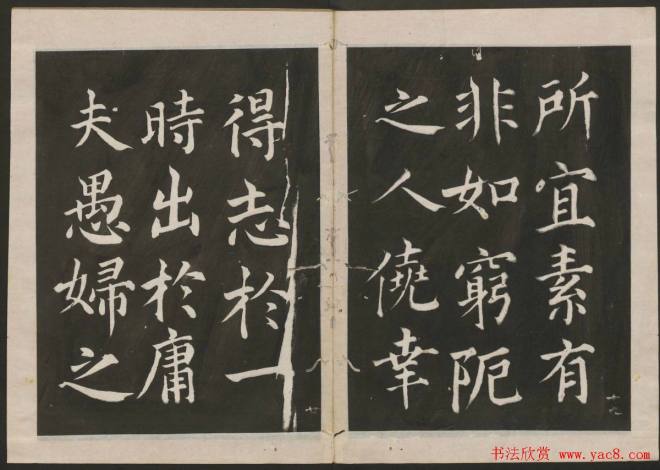 所宜素有
非如窮阨
之人僥幸
得志於一
時出於庸
夫愚婦之
书法欣赏
www.yac8.com